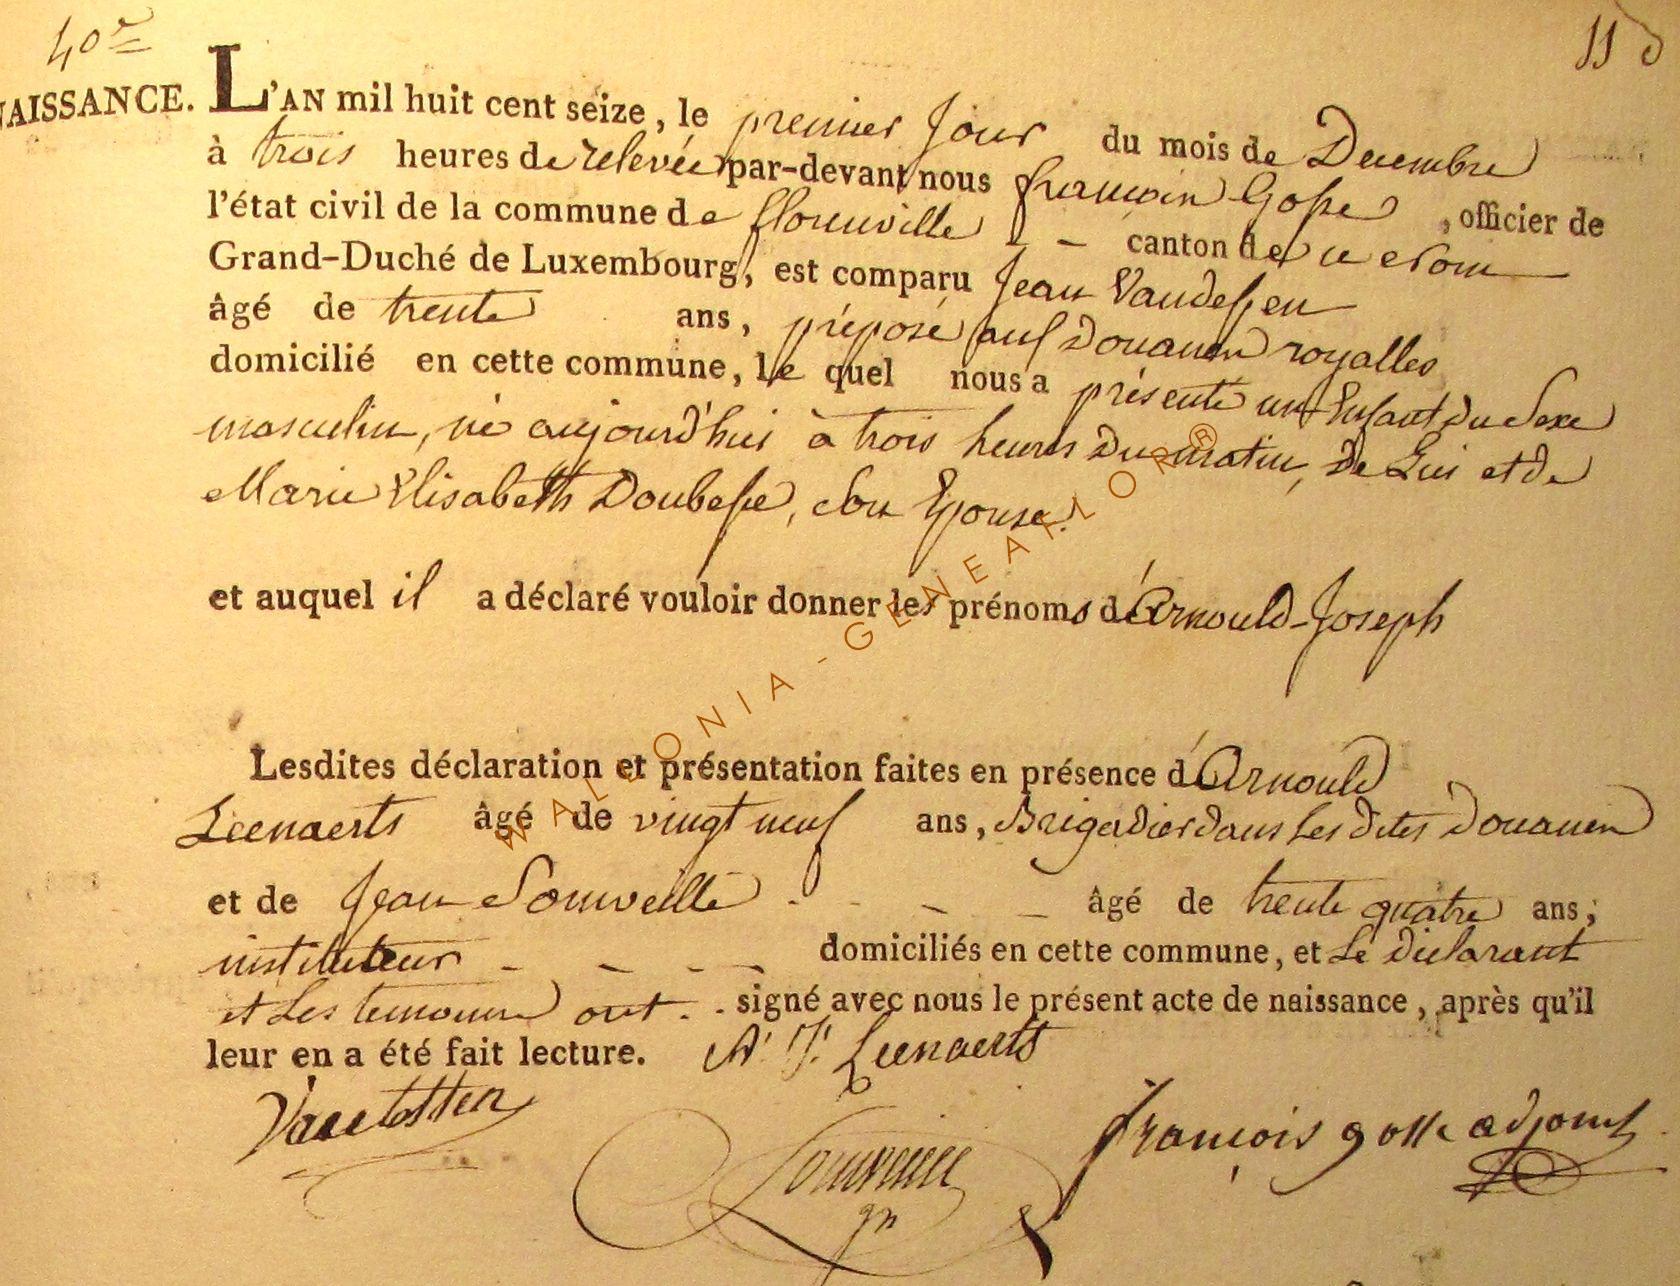 40e
NAISSANCE. L'AN mil huit cent seize, le premier Jour du mois de Decembre
à trois heures de relevée par-devant nous françois Gosse, officier de
l'état civil de la commune de florenville - - canton de
Grand-Duché de Luxembourg, est comparu Jean Vandessen
âgé de trente ans, préposé aux Douanes royalles
domicilié en cette commune, le quel nous a présenté un Enfant du Sexe
masculin, né aujourd'hui à trois heures du matin, de Lui et de
Marie Elisabeth Doubesse, son Epouse.
et auquel il a déclaré vouloir donner les prénoms d'Arnould-Joseph
Lesdites déclaration et présentation faites en présence d'Arnould
Leenaerts âgé de vingt neuf ans, Brigadier dans Les dites Douanes
et de Jean Sonveille - - - - âgé de trente quatre ans,
instituteur - - - - domiciliés en cette commune, et Le déclarant
et Les temoins ont - - signé avec nous le présent acte de naissance, après qu'il
leur en a été fait lecture. A. J. Leenaerts
françois gosse adjoint
WALLONIA-GENEAFLOR®